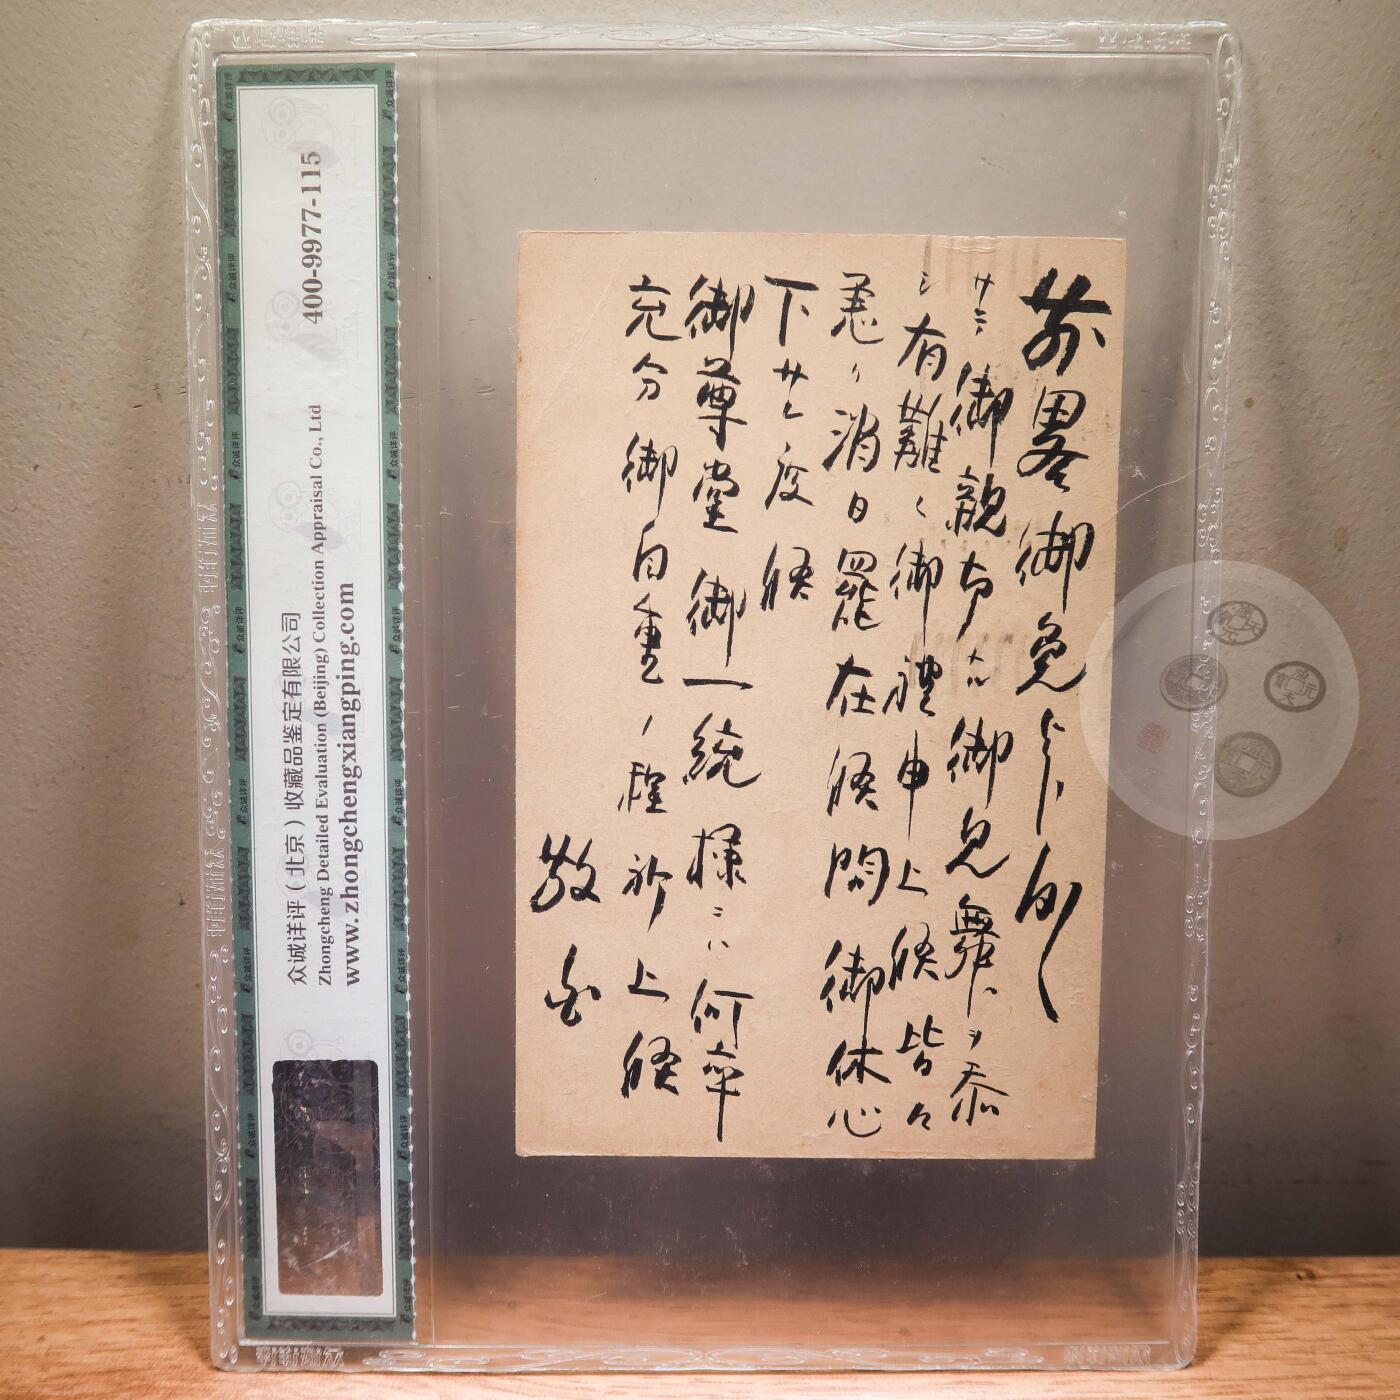 前畧御免
御親切 御見舞ヲ忝
シ有難く御禮申上候皆々
恙 消日罷在候間御休心
下サレ度候
御尊堂御一統様ニハ何卒
充分御自重ノ程祈上候
敬白
众诚详评（北京）收藏品鉴定有限公司 400-9977-115
Zhongcheng Detailed Evaluation (Beijing) Collection Appraisal Co., Ltd
www.zhongchengxiangping.com